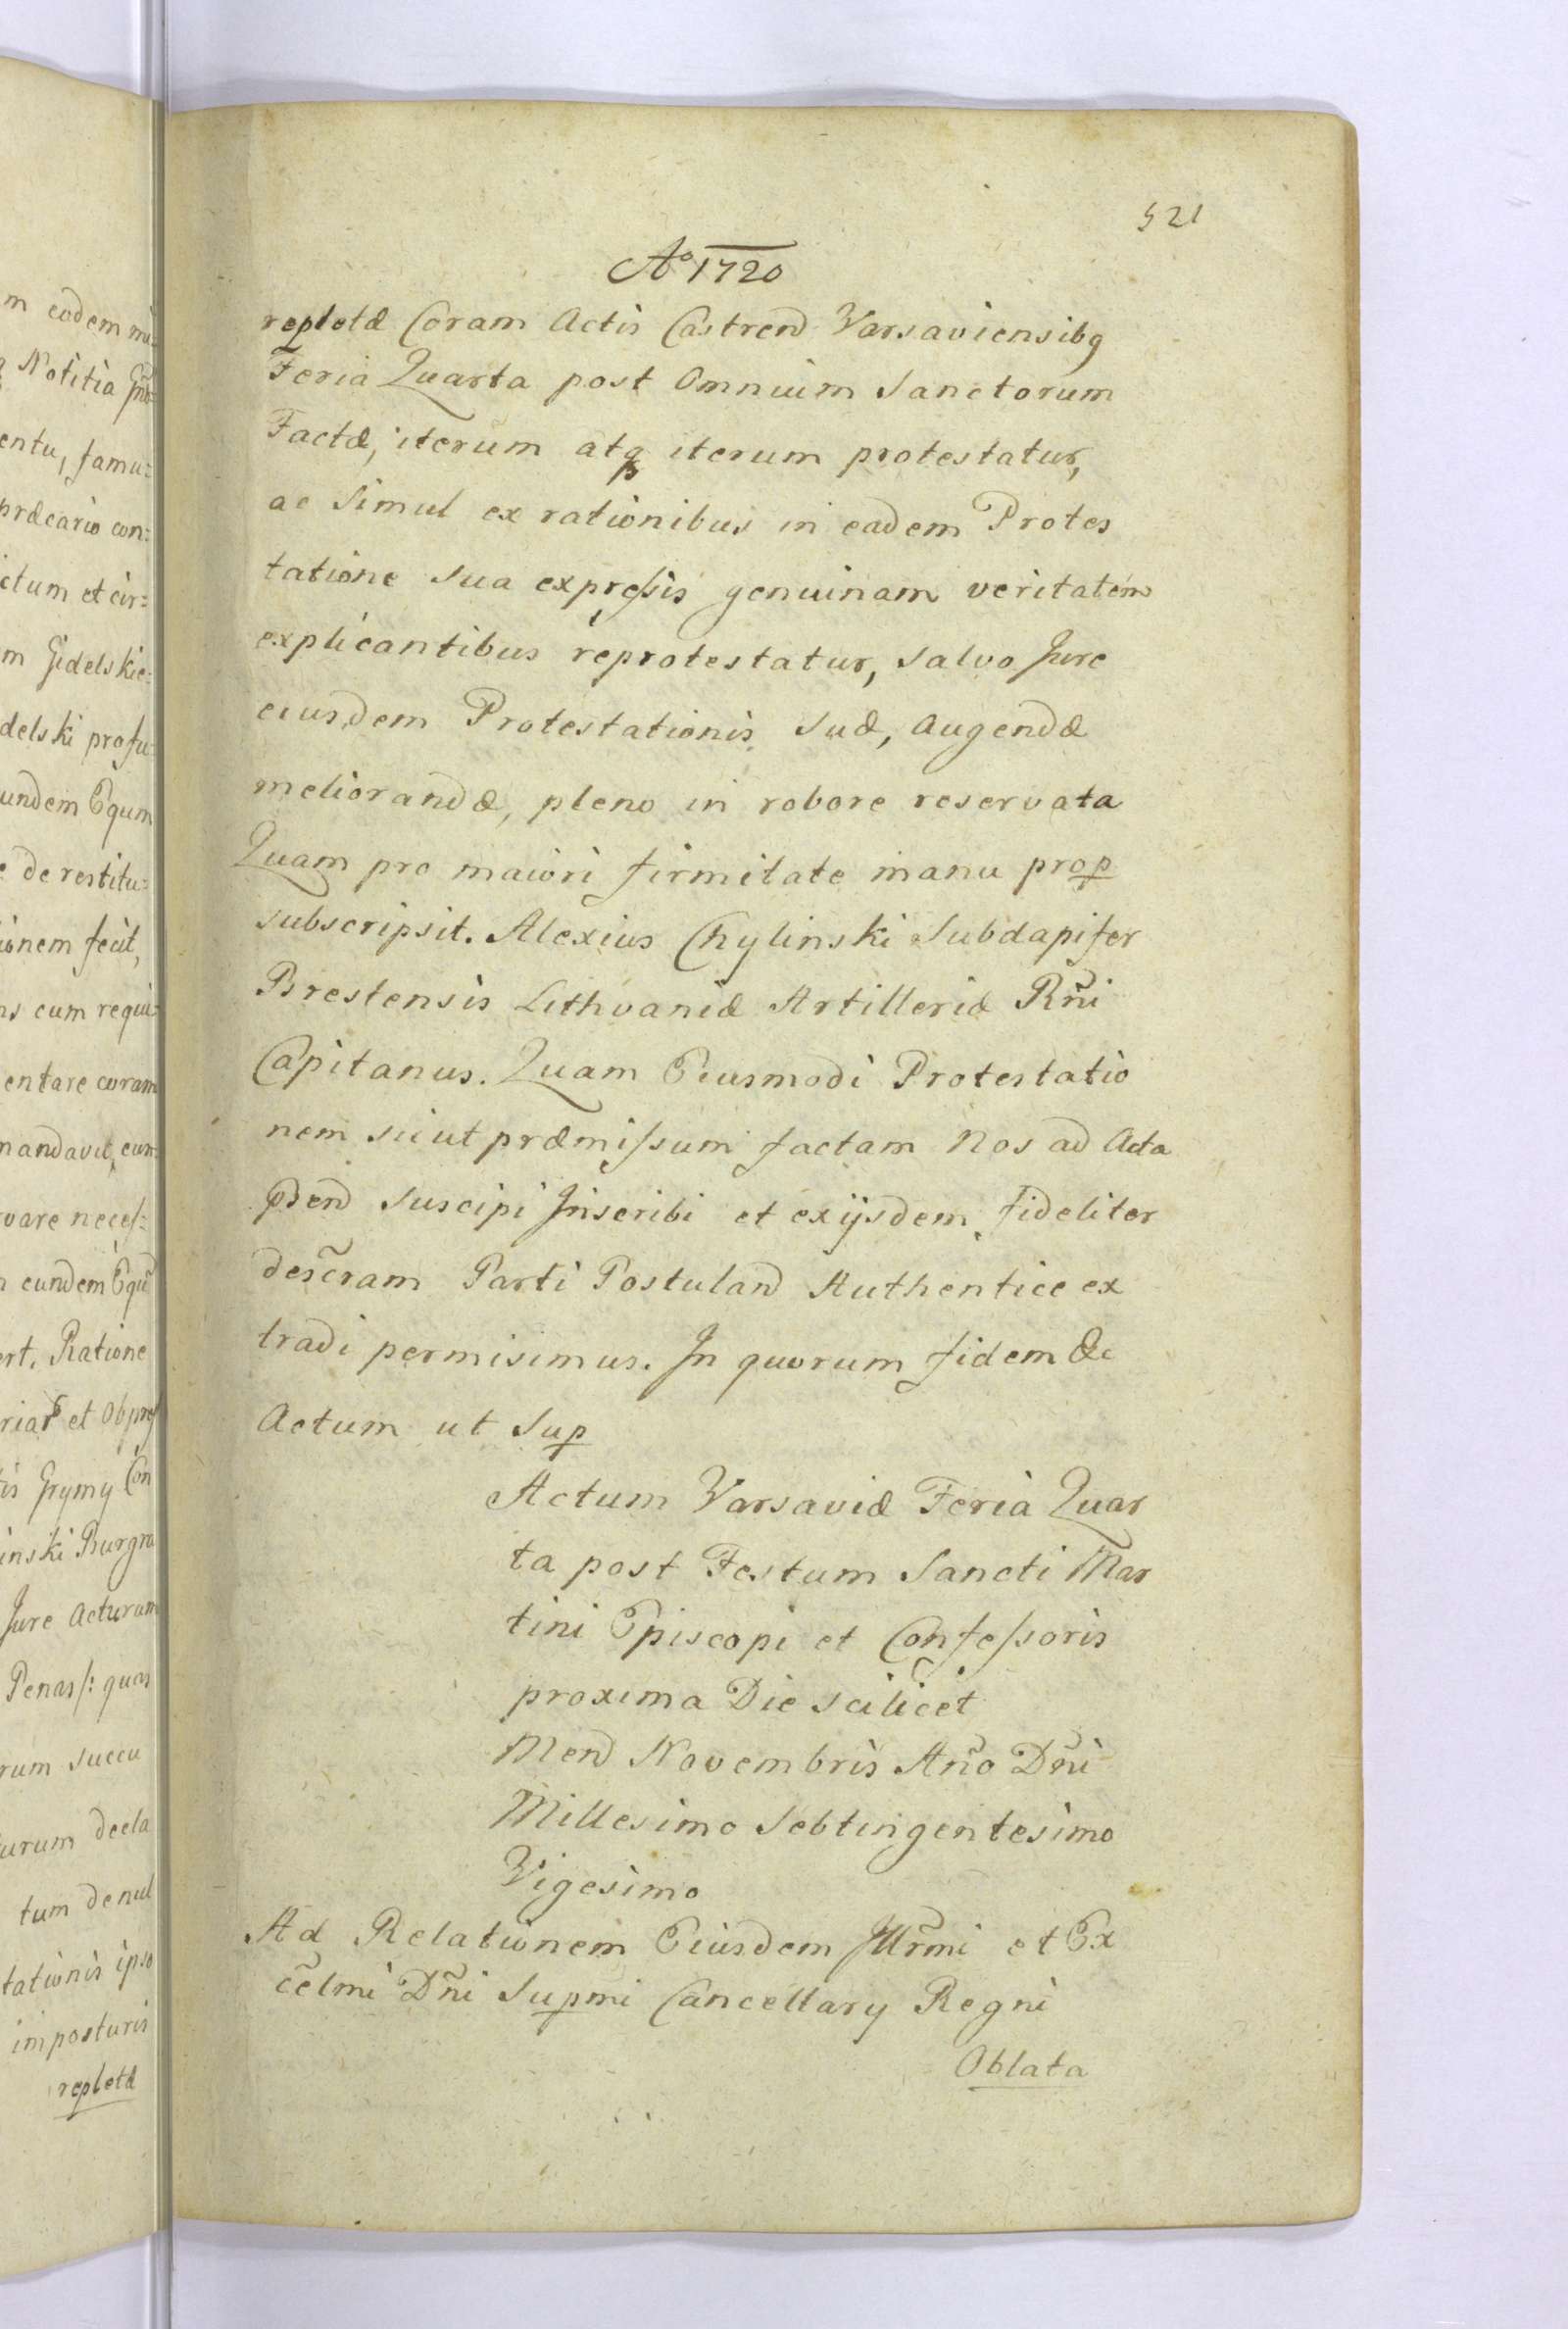 m eodem mi=
Notitia
entu, famu=
præcario con=
ictum et cir=
m Gidelskie=
delski profu=
undem Equm
e de restitu=
ionem fecit,
ns cum requi=
entare coram
mandavit, eun=
vare necess=
n eundem Equ
ert. Ratione
et Obpres
is Grymy Con
inski Burgra
Jure Acturum
Penas /: quas
rum succu
urum decla
tum de nul
tationis ipso
imposturis
repletæ
521
Aº 1720
repletæ Coram Actis Castren̄ Varsaviensibq
Feria Quarta post Omnium Sanctorum
Factæ, iterum atq iterum protestatur,
ac Simul ex rationibus in eadem Protes
tatione Sua expreſsis genuinam veritatem
explicantibus reprotestatur, Salvo Jure
eiusdem Protestationis Suæ, Augendæ
meliorandæ, pleno in robore reservata
Quam pro maiori firmitate manu prop
subscripsit. Alexius Chylinski Subdapifer
Brestensis Lithvaniæ Artilleriæ Rñi
Capitanus. Quam Eiusmodi Protestatio
nem siiut præmiſsum factam Nos ad Acta
pñen̄ Suscipi Jnscribi et exijsdem fideliter
desc̃ram Parti Postulan̄ Authentice ex
tradi permisimus. Jn quorum fidem &c
Actum ut Sup
Actum Varsaviæ Feria Quar
ta post Festum Sancti Mar
tini Episcopi et Confeſsoris
proxima Die scilicet
Men̄ Novembris Año Dñi
Millesimo Sebtingentesimo
Vigesimo
Ad Relationem Eiusdem Jllr̃mi et Ex
cẽlmi Dñi Supmi Cancellary Regni
Oblata